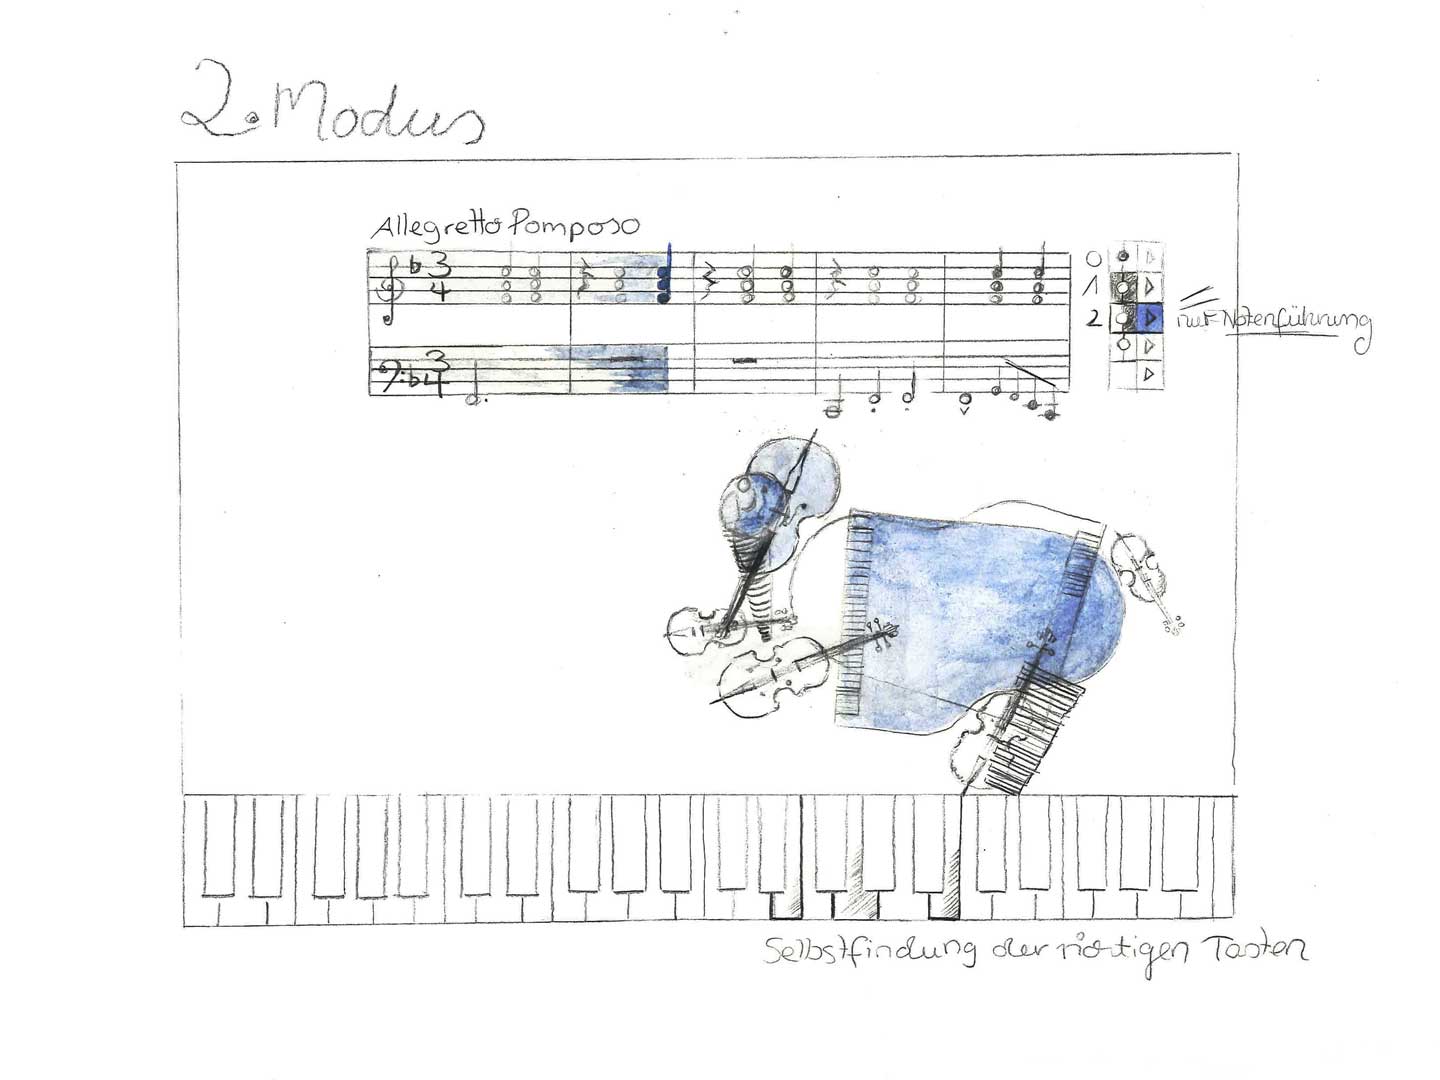 2. Modus
Allegretto Pomposo
3
4
3
4
0
1
2
nur Notenführung
Selbstfindung der richtigen Tasten